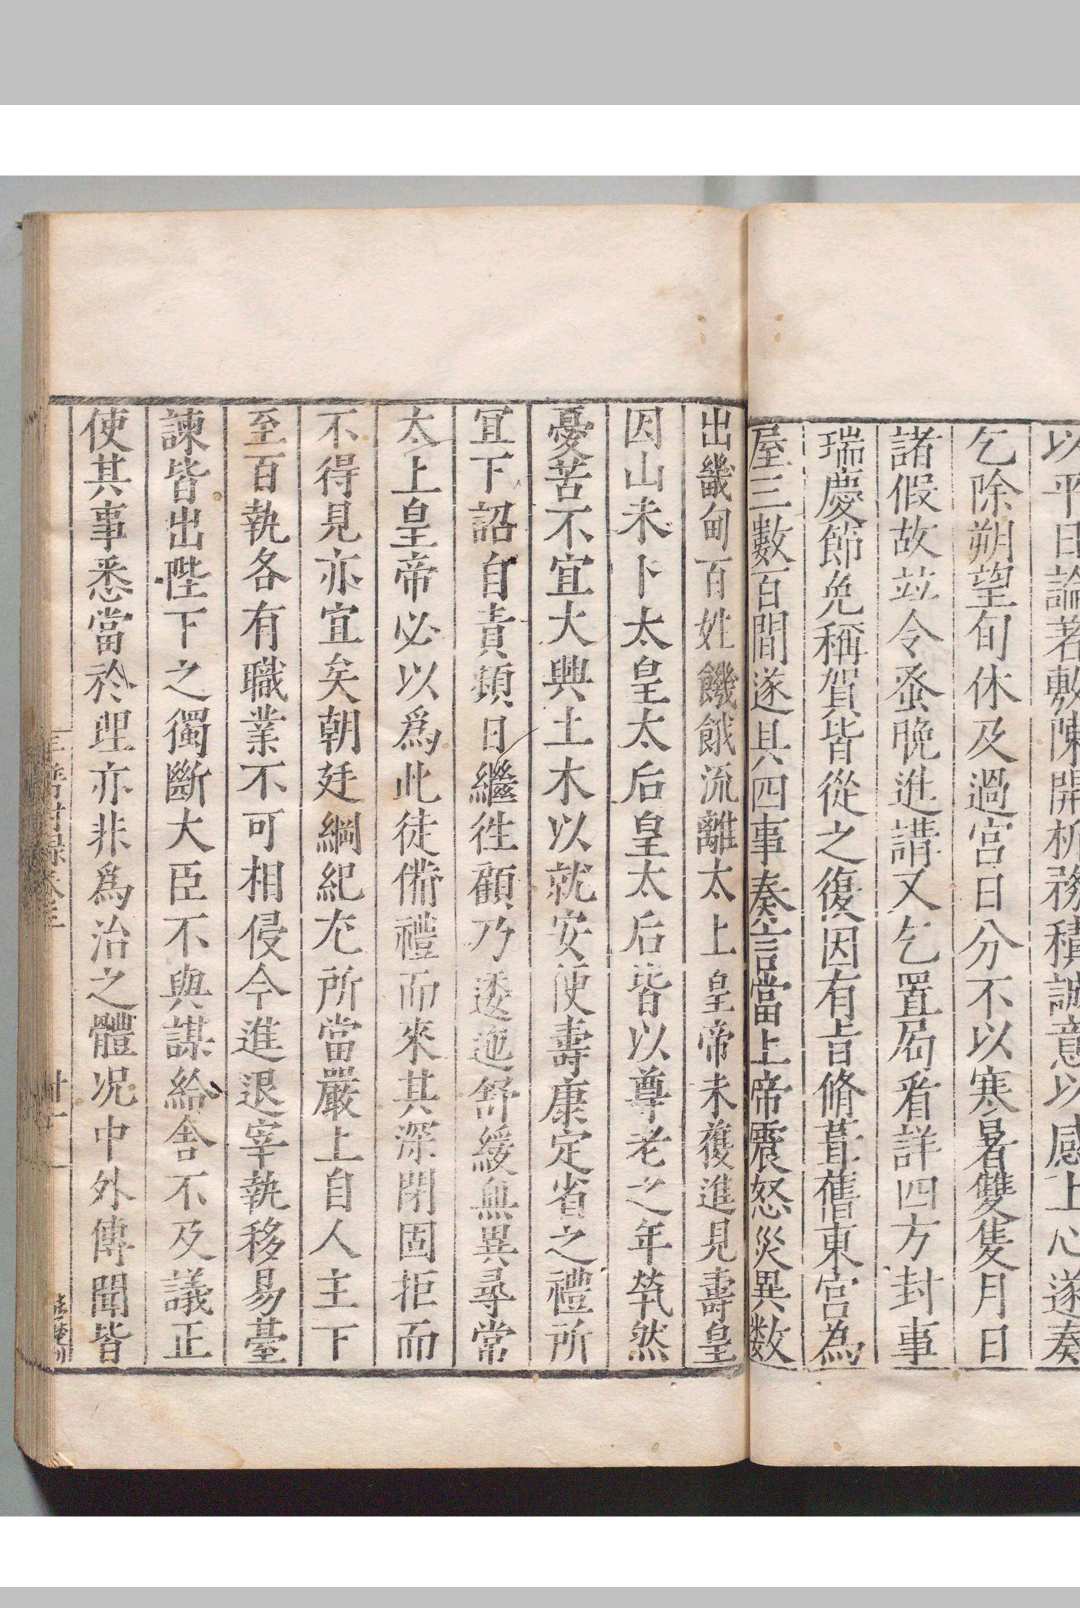 以平日論著敷陳開析務積誠意以感上心遂奏
乞除朔望旬休及過宮日分不以寒暑雙隻月日
諸假故並令蚤晚進講又乞置局看詳四方封事
瑞慶節免稱賀皆從之復因有旨脩葺舊東宮為
屋三數百間遂具四事奏言當上帝震怒災異数
出畿甸百姓饑餓流離太上皇帝未獲進見壽皇
因山未卜太皇太后皇太后皆以尊老之年煢然
憂苦不宜大興土木以就安便壽康定省之禮所
宜下詔自責頻日繼徃顧乃逶迤舒緩無異尋常
太上皇帝必以為此徒備禮而來其深閉固拒而
不得見亦宜矣朝廷綱紀尤所當嚴上自人主下
至百執各有職業不可相侵今進退宰執移易臺
諫皆出陛下之獨斷大臣不與謀給舍不及議正
使其事悉當於理亦非爲治之體况中外傳聞皆